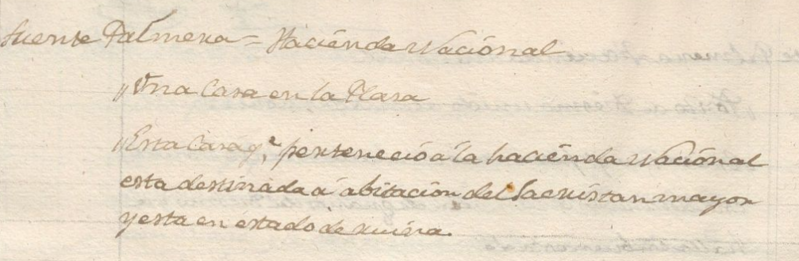 Fuente Palmera = Haciénda Naciónal
„ Una Casa en la Plasa
„ Esta Casa q.e perteneció a la haciénda Nacional
esta destinada a abitacion del Sacristan mayor
y esta en estado de ruina.